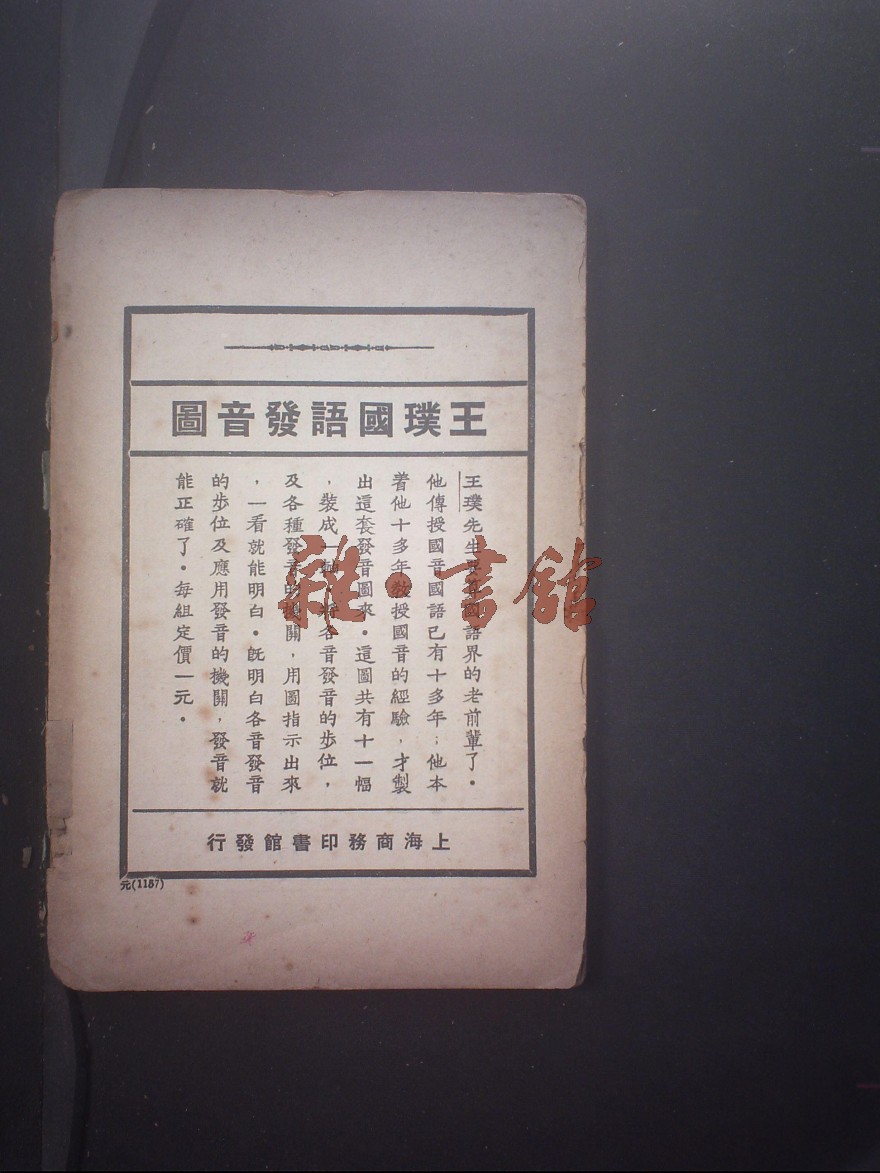 王璞國語發音圖
王璞先生是國語界的老前輩了．
他傳授國音國語已有十多年；他本
着他十多年教授國音的經驗，才製
出這套發音圖來．這圖共有十一幅
，裝成一軸，將各音發音的步位，
及各種發音的機關，用圖指示出來
，一看就能明白．既明白各音發音
的步位及應用發音的機關，發音就
能正確了．每組定價一元．
上海商務印書館發行
元(1157)
雜·書館